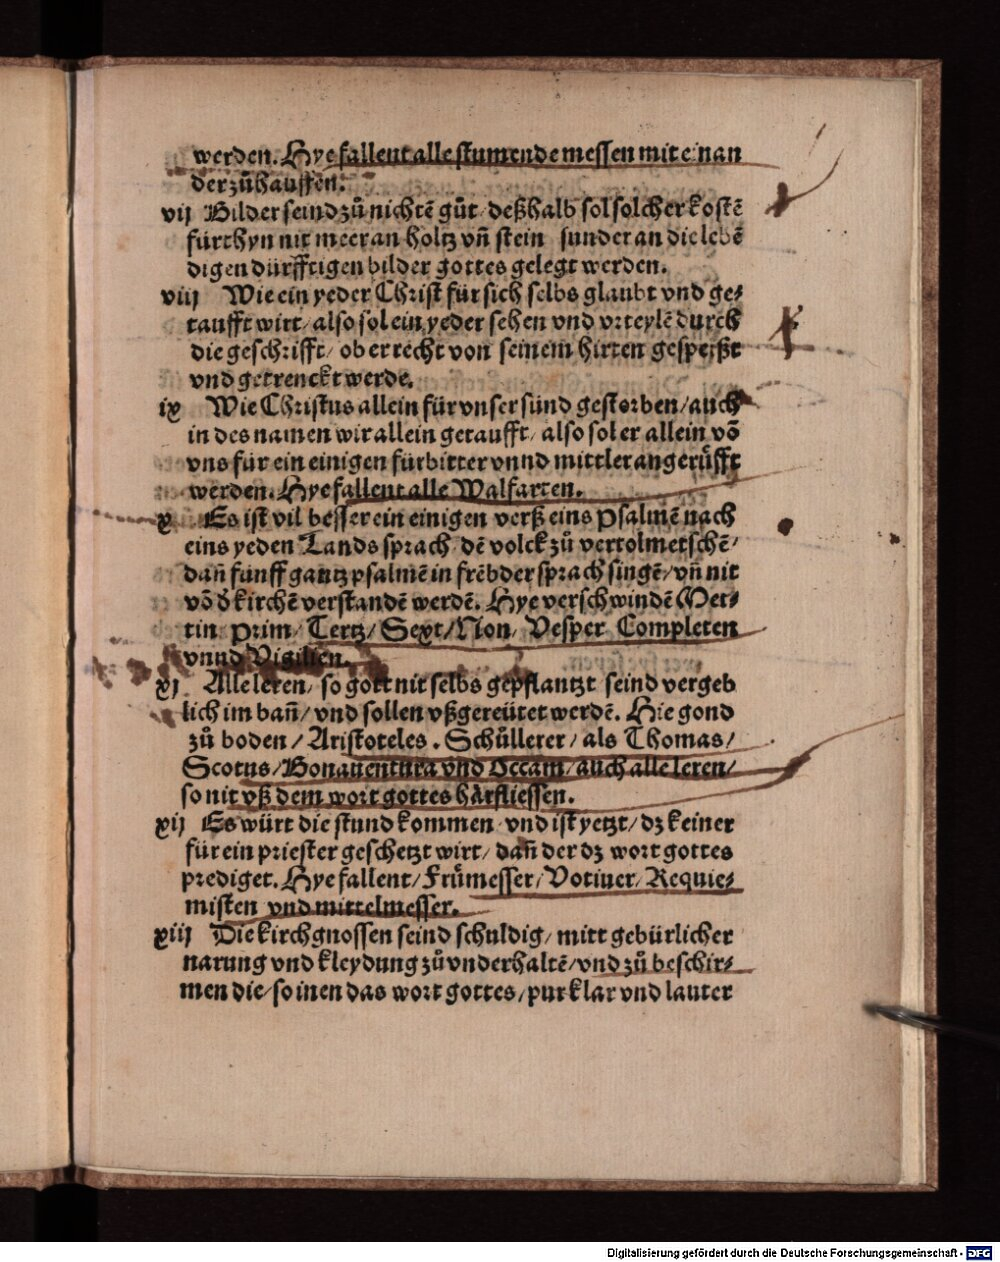 werden. Hye fallent alle stumende messen mit einan
der zů hauffen.
vij Bilder seind zů nichtē gůt/ deßhalb sol solcher kostē
fürthyn nit meer an holtz vñ stein sunder an die lebē
digen dürfftigen bilder gottes gelegt werden.
viij Wie ein yeder Christ für sich selbs glaubt vnd ge⸗
taufft wirt/ also sol ein yeder sehen vnd vrteylē durch
die geschrifft/ ob er recht von seinem hirten gespeyßt
vnd getrenckt werde.
ix Wie Christus allein für vnser sünd gestorben/ auch
in des namen wir allein getaufft/ also sol er allein vō
vns für ein einigen fürbitter vnnd mittler angerůfft
werden. Hye fallent alle Walfarten.
x Es ist vil besser ein einigen verß eins Psalmē nach
eins yeden Lands sprach dē volck zů vertolmetschē/
dañ fünff gantz psalmē in frēbder sprach singē/ vñ nit
vō d̕ kirchē verstandē werdē. Hye verschwindē Met⸗
tin Prim/ Tertz/ Sext/ Non/ Vesper Completen
vnnd Vigilien.
xj Alle leren/ so gott nit selbs gepflantzt seind vergeb
lich im bañ/ vnd sollen vßgereütet werdē. Hie gond
zů boden/ Aristoteles. Schůllerer/ als Thomas/
Scotus/ Bonauentura vnd Occam/ auch alle leren/
so nit vß dem wort gottes härfliessen.
xij Es würt die stund kommen vnd ist yetzt/ dz keiner
für ein priester geschetzt wirt/ dañ der dz wort gottes
prediget. Hye fallent/ Frůmesser/ Votiuer/ Requie⸗
misten vnd mittelmesser.
xiij Die kirchgnossen seind schuldig/ mitt gebürlicher
narung vnd kleydung zů vnderhaltē/ vnd zů beschir⸗
men die/ so inen das wort gottes/ pur klar vnd lauter
Digitalisierung gefördert durch die Deutsche Forschungsgemeinschaft - DFG